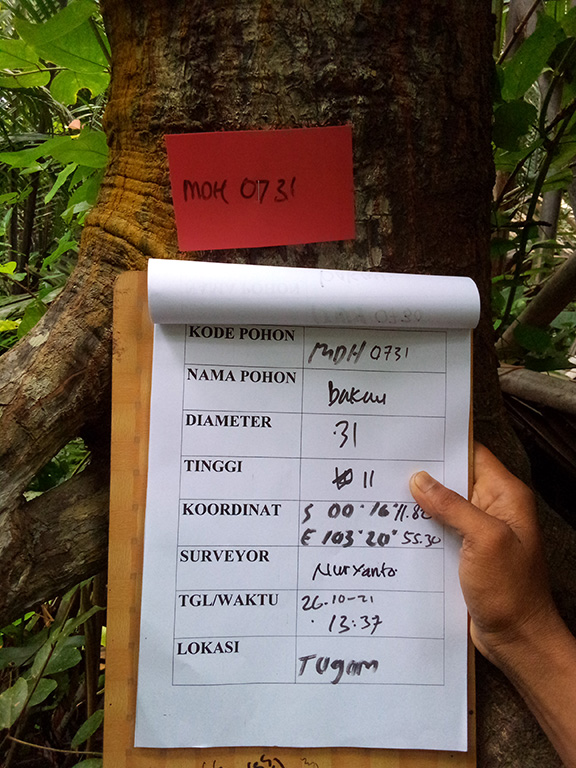 MDH 0731
KODE POHON MDH 0731
NAMA POHON bakau
DIAMETER 31
TINGGI 11
KOORDINAT S 00° 16'
E 103° 20' 55.30
SURVEYOR Nuryanto
TGL/WAKTU 26.10-21
13:37
LOKASI